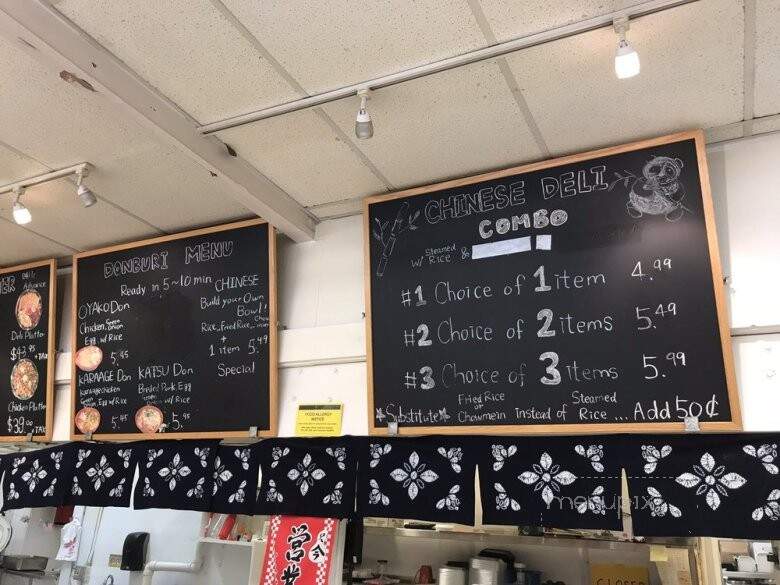 DELI
Advance
Deli Platter
$43.95
+TAX
Chicken Platter
$39.00
+TAX
DONBURI MENU
Ready in 5~10 min
OYAKO Don
Chicken, Green onion
Egg w/ Rice
5.45
KARAAGE Don
Karaage chicken
Egg w/ Rice
5.45
KATSU Don
Breaded Pork, Egg
w/ Rice
5.95
CHINESE
Build your Own
Bowl!
Rice, Fried Rice, Chow mein
+
1 item 5.49
Special
CHINESE DELI
COMBO
w/ Steamed Rice &
#1 Choice of 1 item 4.99
#2 Choice of 2 items 5.49
#3 Choice of 3 items 5.99
*Substitute* Fried Rice or Chowmein Instead of Steamed Rice... Add 50¢
FOOD ALLERGY
NOTICE
只今
営業
CLOSED
menupix